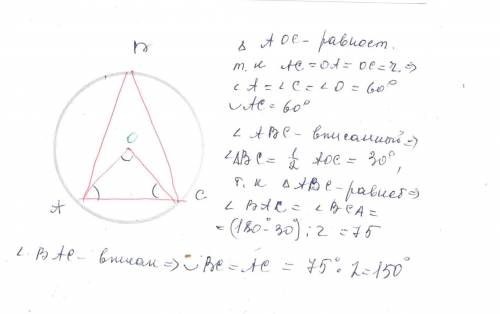 B
O
A
C
Δ AOC - равност.
т. к AC = OA = OC = r. ⇒
∠A = ∠C = ∠O = 60°
◡AC = 60°
∠ ABC - вписанный ⇒
∠ABC = 1/2 AOC = 30°,
т. к Δ ABC - равнст ⇒
∠ BAC = ∠ BCA =
= (180° - 30°) : 2 = 75
∠ BAC - вписан ⇒ ◡ BC = AC = 75° · 2 = 150°